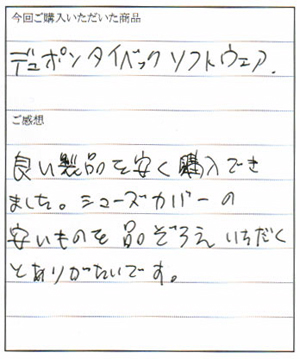 今回ご購入いただいた商品
デュポンタイベックソフトウェア.
ご感想
良い製品を安く購入でき
ました。シューズカバーの
安いものを品ぞろえいちだく
とありがたいです。